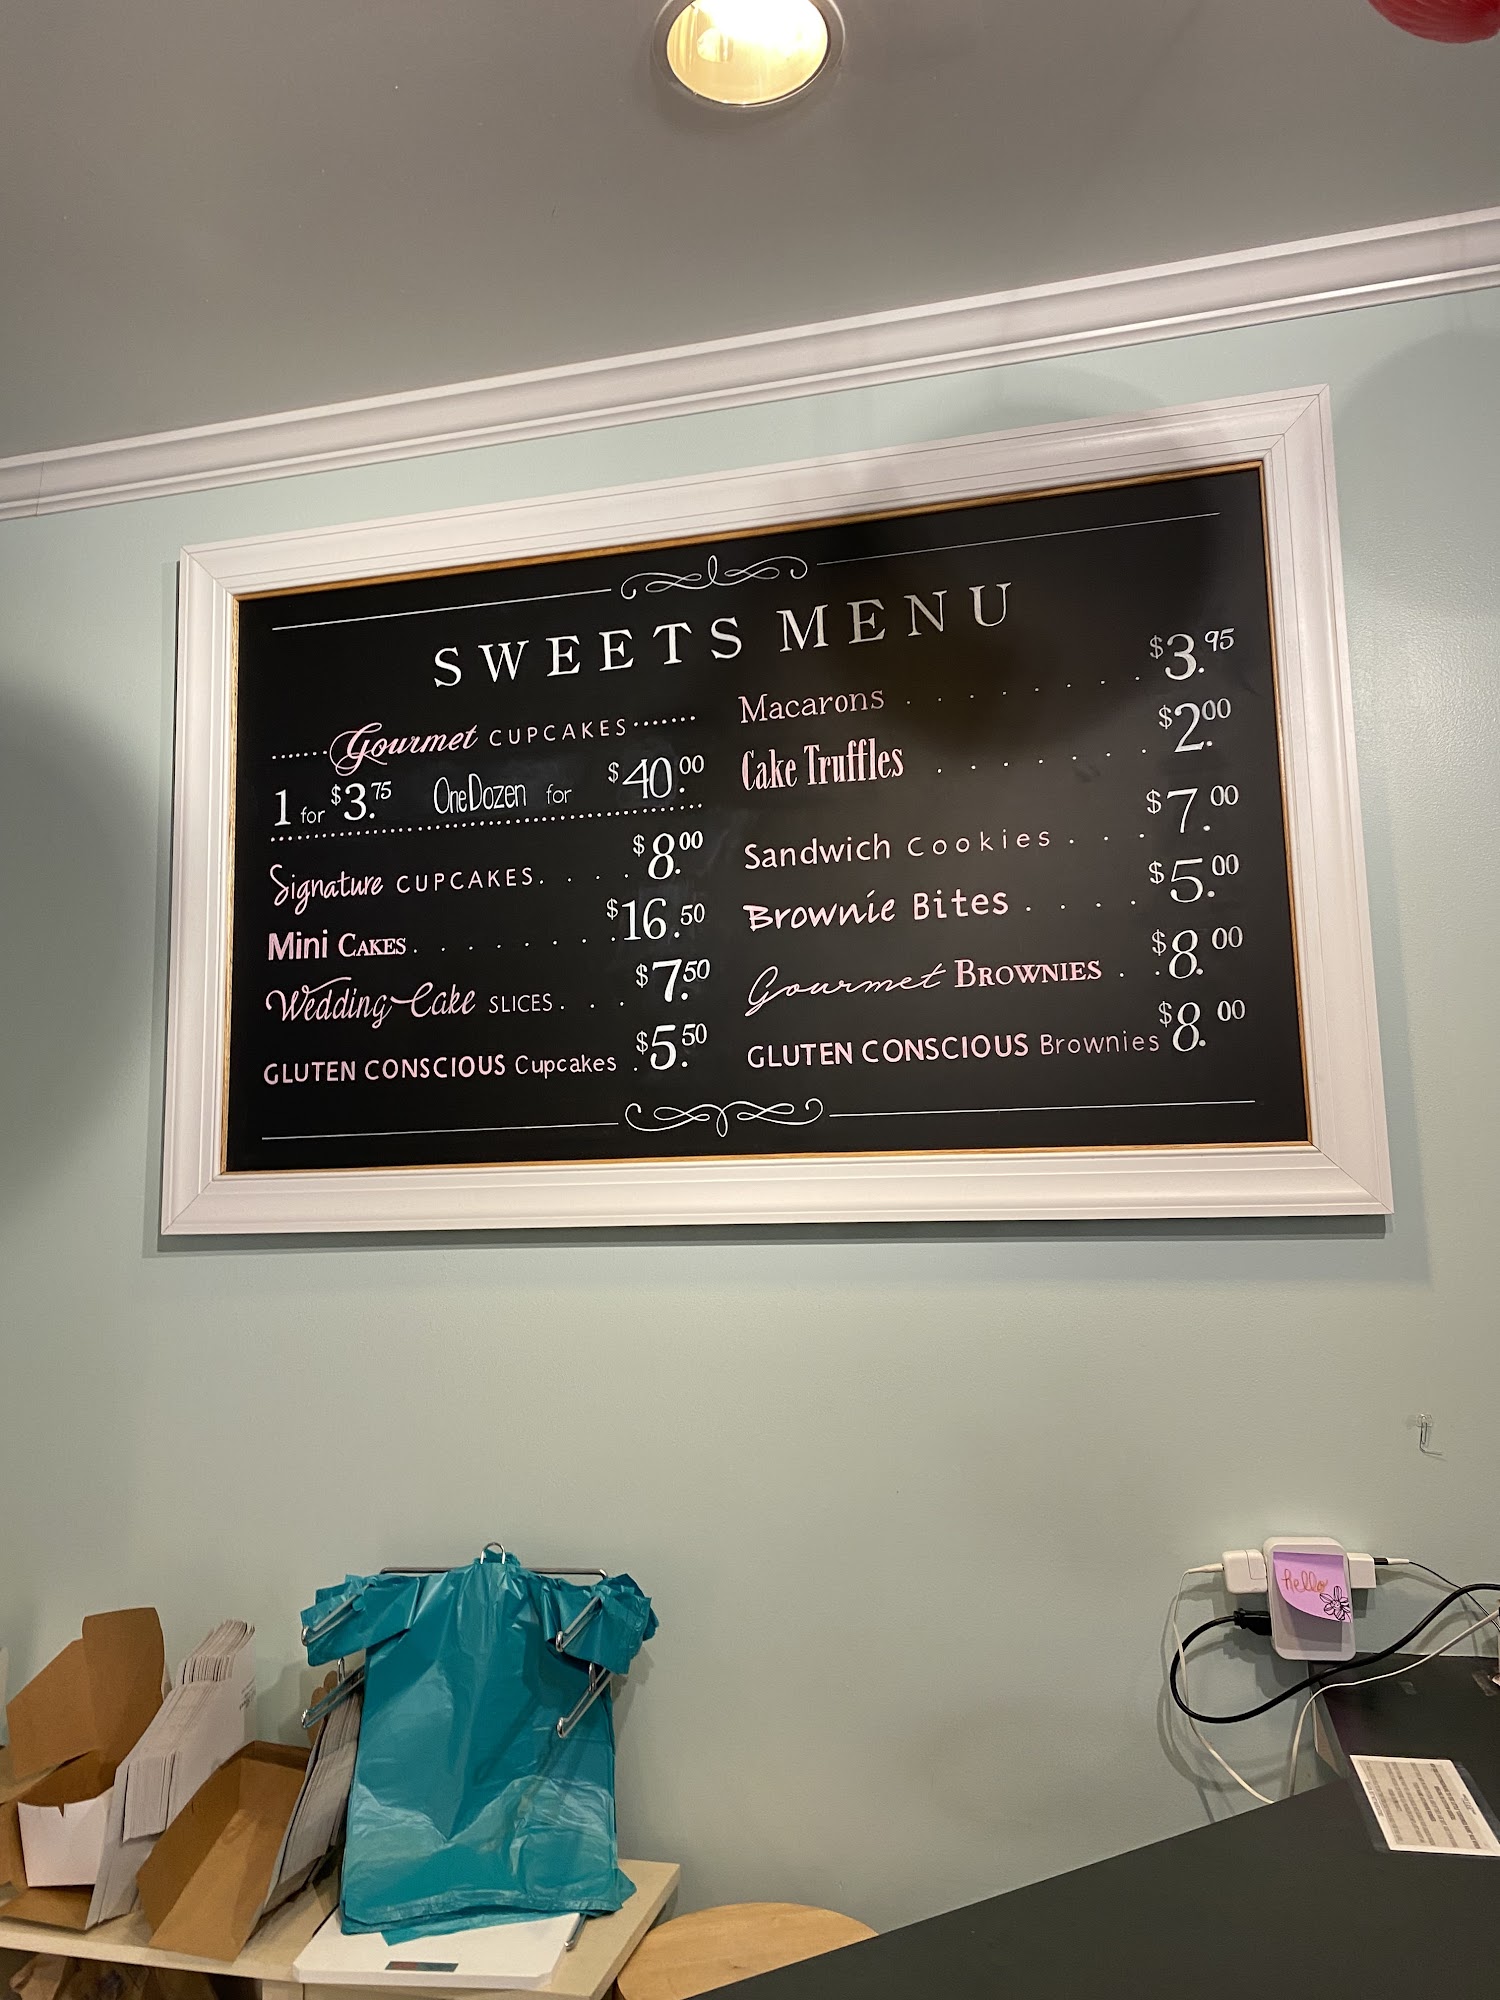 SWEETS MENU
Gourmet CUPCAKES
1 for $3.75 One Dozen for $40.00
Signature CUPCAKES. . . . . $8.00
Mini CAKES. . . . . . . . $16.50
Wedding Cake SLICES. . . $7.50
GLUTEN CONSCIOUS Cupcakes . $5.50
Macarons . . . . . . . . . $3.95
Cake Truffles . . . . . . . $2.00
Sandwich Cookies . . . $7.00
Brownie Bites . . . . $5.00
Gourmet BROWNIES . . $8.00
GLUTEN CONSCIOUS Brownies $8.00
hello